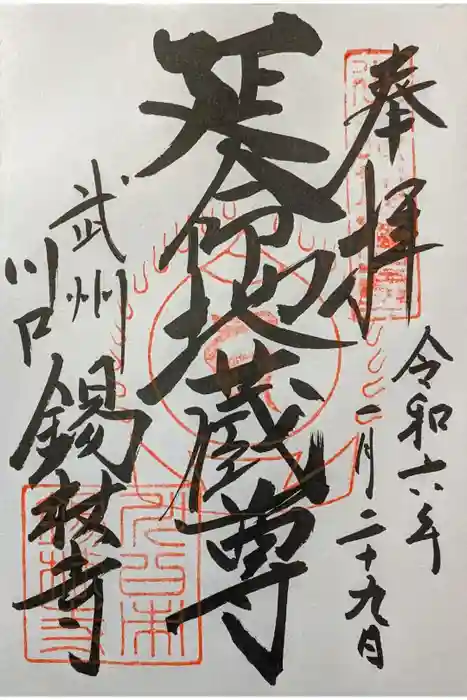 奉拝
令和六年
二月二十九日
延命地蔵尊
武州
川口
錫杖寺